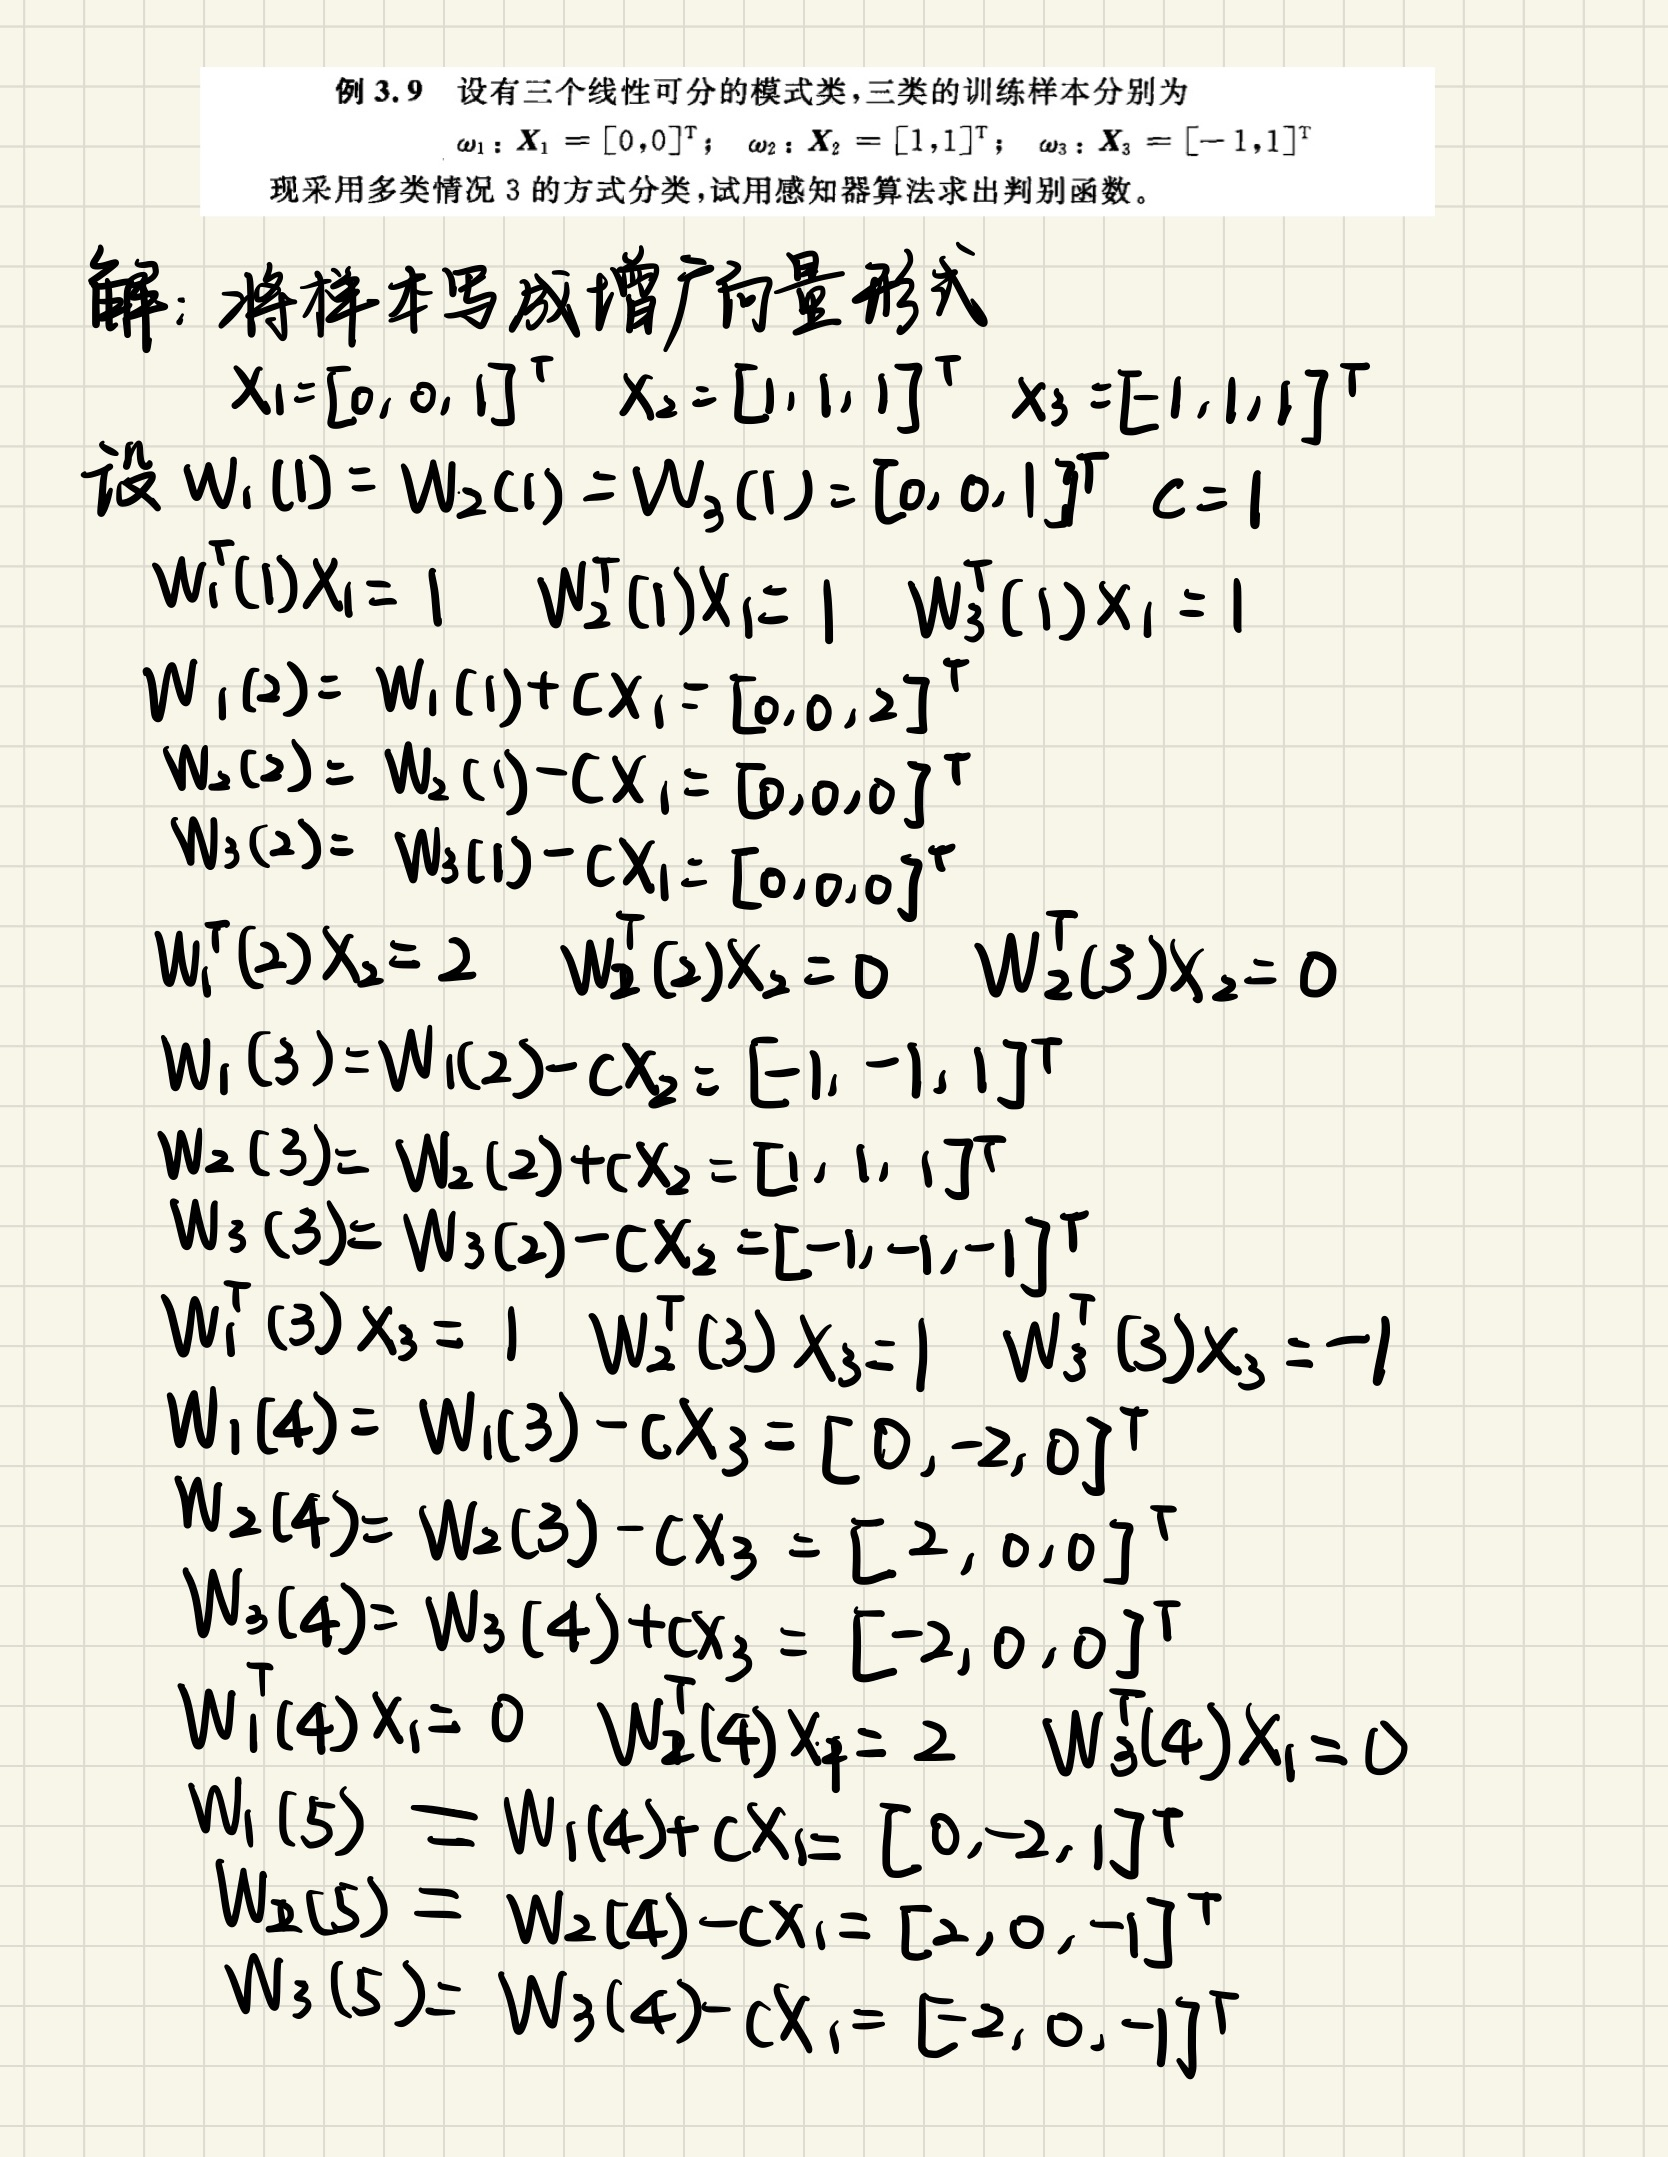 例 3.9 设有三个线性可分的模式类,三类的训练样本分别为
ω₁: X₁ = [0,0]ᵀ; ω₂: X₂ = [1,1]ᵀ; ω₃: X₃ = [-1,1]ᵀ
现采用多类情况 3 的方式分类,试用感知器算法求出判别函数。
解: 将样本写成增广向量形式
X₁=[0,0,1]ᵀ X₂=[1,1,1]ᵀ X₃=[-1,1,1]ᵀ
设 W₁(1)=W₂(1)=W₃(1)=[0,0,1]ᵀ C=1
W₁ᵀ(1)X₁=1 W₂ᵀ(1)X₁=1 W₃ᵀ(1)X₁=1
W₁(2)=W₁(1)+CX₁=[0,0,2]ᵀ
W₂(2)=W₂(1)-CX₁=[0,0,0]ᵀ
W₃(2)=W₃(1)-CX₁=[0,0,0]ᵀ
W₁ᵀ(2)X₂=2 W₂ᵀ(2)X₂=0 W₂ᵀ(3)X₂=0
W₁(3)=W₁(2)-CX₂=[-1,-1,1]ᵀ
W₂(3)=W₂(2)+CX₂=[1,1,1]ᵀ
W₃(3)=W₃(2)-CX₂=[-1,-1,-1]ᵀ
W₁ᵀ(3)X₃=1 W₂ᵀ(3)X₃=1 W₃ᵀ(3)X₃=-1
W₁(4)=W₁(3)-CX₃=[0,-2,0]ᵀ
W₂(4)=W₂(3)-CX₃=[2,0,0]ᵀ
W₃(4)=W₃(4)+CX₃=[-2,0,0]ᵀ
W₁ᵀ(4)X₁=0 W₂ᵀ(4)X₁=2 W₃ᵀ(4)X₁=0
W₁(5)=W₁(4)+CX₁=[0,-2,1]ᵀ
W₂(5)=W₂(4)-CX₁=[2,0,-1]ᵀ
W₃(5)=W₃(4)-CX₁=[-2,0,-1]ᵀ